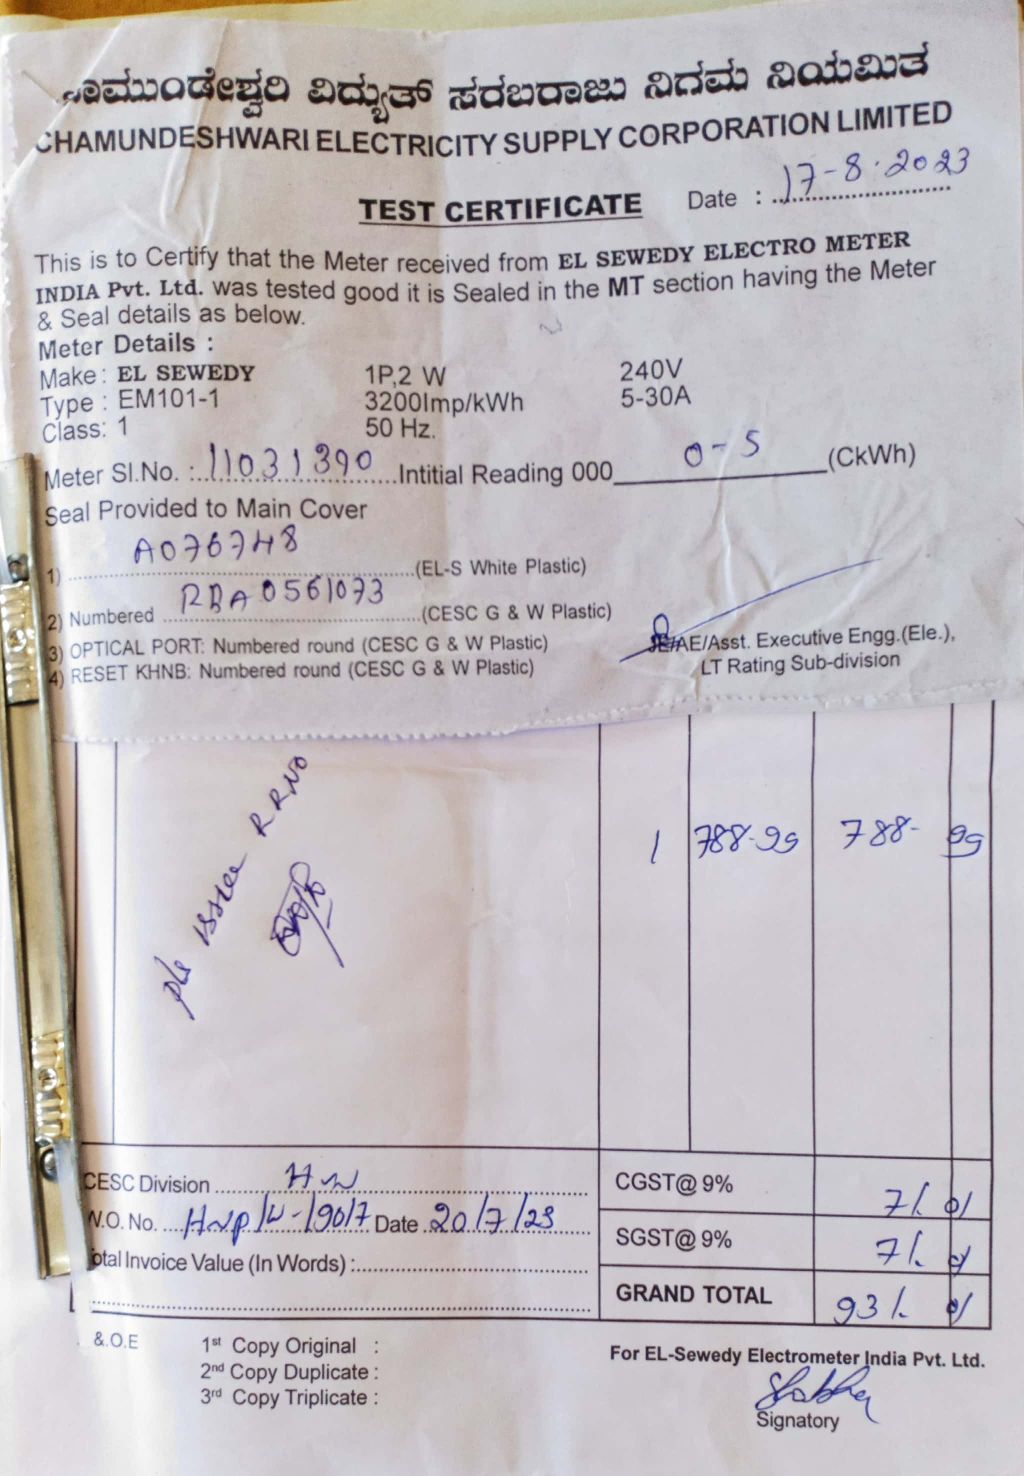 ಚಾಮುಂಡೇಶ್ವರಿ ವಿದ್ಯುತ್ ಸರಬರಾಜು ನಿಗಮ ನಿಯಮಿತ
CHAMUNDESHWARI ELECTRICITY SUPPLY CORPORATION LIMITED
TEST CERTIFICATE Date : 17-8-2023
This is to Certify that the Meter received from EL SEWEDY ELECTRO METER
INDIA Pvt. Ltd. was tested good it is Sealed in the MT section having the Meter
& Seal details as below.
Meter Details :
Make : EL SEWEDY 1P,2 W 240V
Type : EM101-1 3200Imp/kWh 5-30A
Class: 1 50 Hz.
Meter Sl.No. : 11031390 Intitial Reading 000 0-5 (CkWh)
Seal Provided to Main Cover
1) A076748 (EL-S White Plastic)
2) Numbered RBA0561073 (CESC G & W Plastic)
3) OPTICAL PORT: Numbered round (CESC G & W Plastic)
4) RESET KHNB: Numbered round (CESC G & W Plastic)
JE/AE/Asst. Executive Engg.(Ele.),
LT Rating Sub-division
pls issue R R No
1 788-99 788- 99
CESC Division CGST@ 9% 71. 01
W.O. No. Date 20/7/23
SGST@ 9% 71. 01
Total Invoice Value (In Words) :
GRAND TOTAL 931. 01
&.O.E
1st Copy Original :
2nd Copy Duplicate :
3rd Copy Triplicate :
For EL-Sewedy Electrometer India Pvt. Ltd.
Signatory